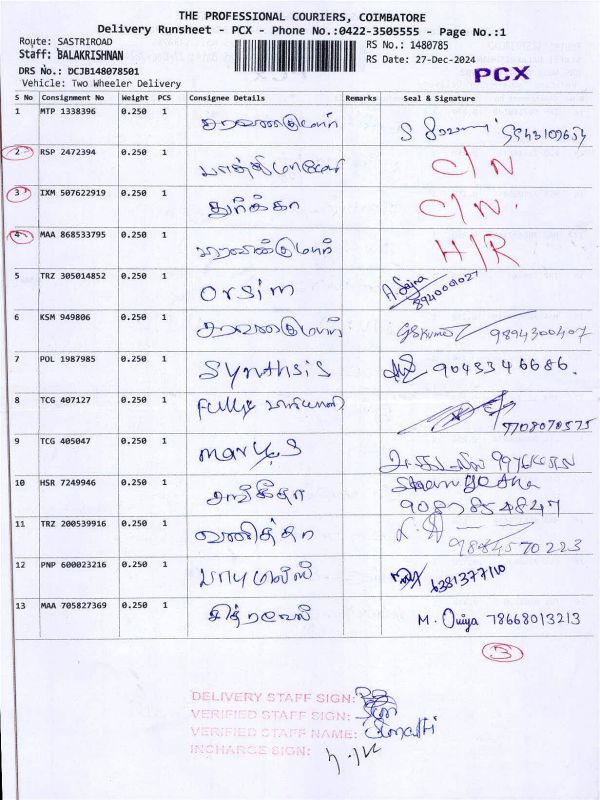 THE PROFESSIONAL COURIERS, COIMBATORE
Delivery Runsheet - PCX - Phone No.:0422-3505555 - Page No.:1
Route: SASTRIROAD
Staff: BALAKRISHNAN
DRS No.: DCJB148078501
Vehicle: Two Wheeler Delivery
RS No.: 1480785
RS Date: 27-Dec-2024
PCX
S No Consignment No Weight PCS Consignee Details Remarks Seal & Signature
1 MTP 1338396 0.250 1 சரவணகுமார்
2 RSP 2472394 0.250 1 C/N
3 IXM 507622919 0.250 1 துர்க்கா C/N.
4 MAA 868533795 0.250 1 H/R
5 TRZ 305014852 0.250 1 Orsim A. Sajna 8940001027
6 KSM 949806 0.250 1 சரவணகுமார் GSKumar 9894300407
7 POL 1987985 0.250 1 Synthsis 9043346686.
8 TCG 407127 0.250 1 7708070575
9 TCG 405047 0.250 1
10 HSR 7249946 0.250 1 சங்கீதா
9087854847
11 TRZ 200539916 0.250 1 வனித்தா
9884570223
12 PNP 600023216 0.250 1 பாபு 6381377110
13 MAA 705827369 0.250 1 சித்ரவேல் M. Oviya 78668013213
3
DELIVERY STAFF SIGN:
VERIFIED STAFF SIGN:
VERIFIED STAFF NAME:
INCHARGE SIGN: